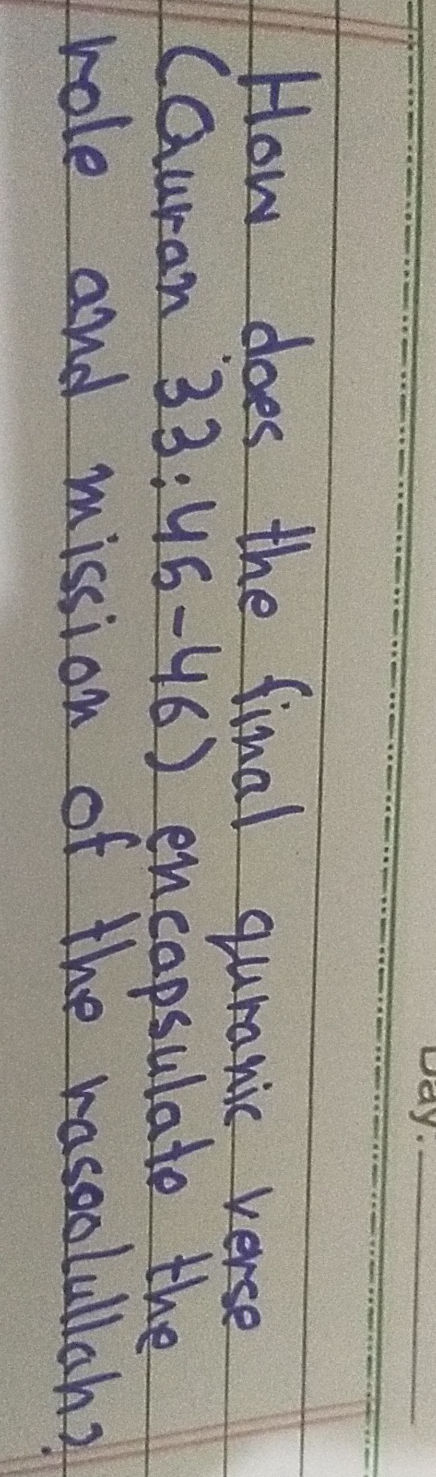 Day:
How does the final quranic verse
(Quran 33:45-46) encapsulate the
role and mission of the rasoolullah?